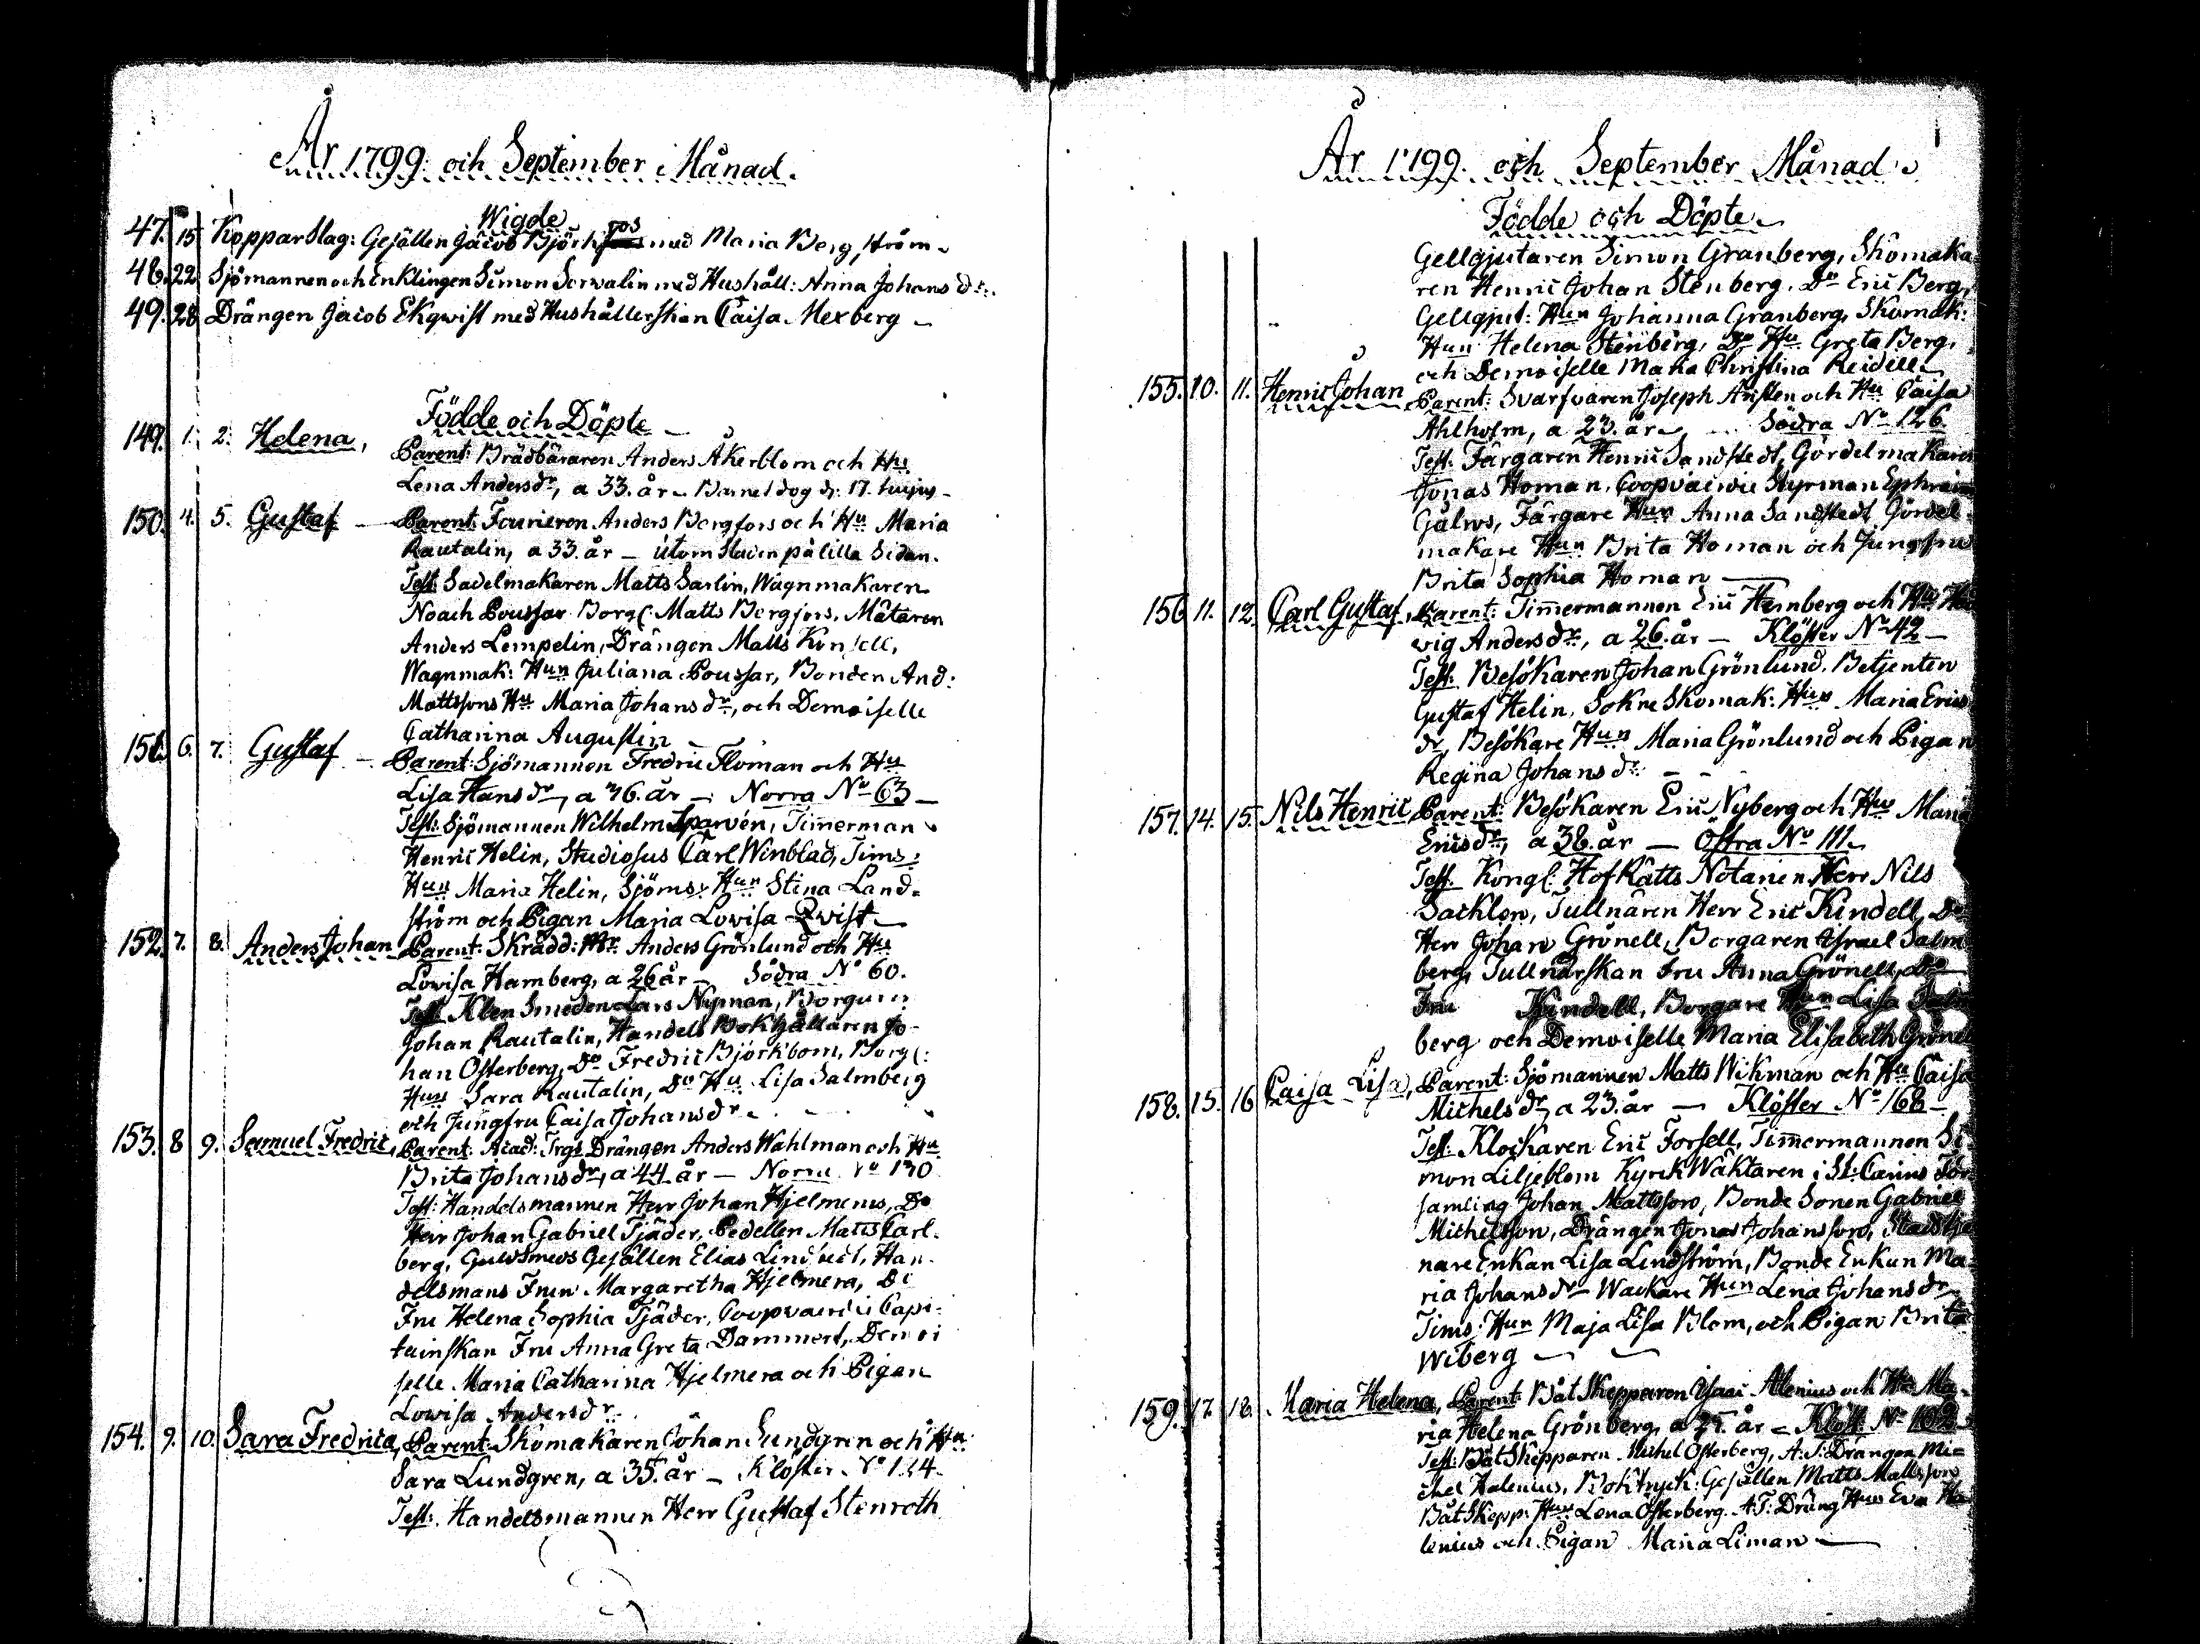 År 1799. och September Månad.
Wigde
47. 15 Kopparslag: Gesällen Jacob Björkfors med Maria Bergström
48. 22 Sjömannen och Enklingen Simon Serwalin med Hushåll: Anna Johansdr.
49. 28 Drängen Jacob Ekqwist med Hushållerskan Caisa Mexberg
Födde och Döpte
149. 1. 2. Helena, Parent: Brädbäraren Anders Åkerblom och Hu
Lena Andersdr, a 33. år. Barnet dog d. 17. hujus
150. 4. 5. Gustaf Parent: Fourieren Anders Bergfors och Hu Maria
Rautalin, a 33. år – utom Staden på lilla Sidan.
Test: Sadelmakaren Matts Sarlin, Wagnmakaren
Noach Poussar Borgl: Matts Bergfors, Mätaren
Anders Lempelin, Drängen Matts
Wagnmak: Hun Juliana Poussar, Bonden And:
Mattssons Hu Maria Johansdr, och Demoiselle
Catharina Augustin
151. 6. 7. Gustaf – Parent: Sjömannen Fredric Floman och Hu
Lisa Hansdr, a 36. år – Norra No 63
Test: Sjömannen Wilhelm Sparvén, Timmerman
Henric Helin, Studiosus Carl Winblad, Tims:
Hun Maria Helin, Sjöms: Hun Stina Land-
ström och Pigan Maria Lowisa Qwist
152. 7. 8. Anders Johan Parent: Skrädd: Mr Anders Grönlund och Hu
Lowisa Hamberg, a 26 år – Södra No 60.
Test: Klen Smeden Lars Nyman, Borgaren
Johan Rautalin, Handels Bokhållaren Jo-
han Österberg, Do Fredric Björkbom, Borgl:
Hun Sara Rautalin, Do Hu Lisa Salmberg
och Jungfru Caisa Johansdr
153. 8 9. Samuel Fredric, Parent: Acad: Trgs Drängen Anders Wahlman och Hu
Brita Johansdr, a 44 år – Norra No 130
Test: Handelsmannen Herr Johan Hjelmerus, Do
Herr Johan Gabriel Tjäder, Pedellen Matts Carl-
berg, Guldsmeds Gesällen Elias Lindstedt, Han-
delsmans Frun Margaretha Hjelmera, Do
Fru Helena Sophia Tjäder, Coopvaerdie Capi-
tainskan Fru Anna Greta Dammert, Demoi
selle Maria Catharina Hjelmera och Pigan
Lowisa Andersdr
154. 9. 10. Sara Fredrica, Parent: Skomakaren Johan Lundgren och Hu
Sara Lundgren, a 35. år – Kloster No 124
Test: Handelsmannen Herr Gustaf Stenroth
År 1799. och September Månad
Födde och Döpte
Gellgjutaren Simon Granberg, Skomaka
ren Henric Johan Stenberg, Do Eric Berg,
Gellgjut: Hun Johanna Granberg, Skomak:
Hun Helena Stenberg, Do Hu Greta Berg,
och Demoiselle Maria Christina Reidell
155. 10. 11. Henric Johan Parent: Svarfvaren Joseph Ahlsten och Hu Caisa
Ahlholm, a 23. år – Södra No 126
Test: Färgaren Henric Sandstedt, Gördelmakaren
Jonas Homan, Coopvairdie Styrman Ephraim
Färgare Hun Anna Sandstedt, Gördel-
makare Hun Brita Homan och Jungfru
Brita Sophia Homan
156 11. 12. Carl Gustaf, Parent: Timmermannen Eric Hernberg och Hu Hed
vig Andersdr, a 26. år – Klöster No 42
Test: Besökaren Johan Grönlund, Betjenten
Gustaf Helin, Sokne Skomak: Hun Maria Erics
dr, Besökare Hun Maria Grönlund och Pigan
Regina Johansdr
157. 14. 15. Nils Henric, Parent: Besökaren Eric Nyberg och Hu Maria
Ericsdr, a 38. år – Östra No 111.
Test: Kongl: HofRätts Notarien Herr Nils
Sacklen, Tullnären Herr Eric Kindell, Do
Herr Johan Grönell, Borgaren Israel Salm
berg, Tullnärskan Fru Anna Grönell, Do
Fru Kindell, Borgare Hun Lisa Salm
berg och Demoiselle Maria Elisabeth Grönell
158. 15. 16 Caisa Lisa, Parent: Sjömannen Matts Wikman och Hu Caisa
Michelsdr, a 23. år – Klöster No 168
Test: Klockaren Eric Forsell, Timmermannen Si
mon Liljeblom Kyrck Wäktaren i St: Carins För
samling Johan Mattsson, Bonde Sonen Gabriel
Michelsson, Drängen Jonas Johansson, Stadstje
nare Enkan Lisa Lindström, Bonde Enkan Ma
ria Johansdr Wackare Hun Lena Johansdr
Tims: Hun Maja Lisa Blom, och Pigan Brita
Wiberg
159. 17. 18. Maria Helena, Parent: Båt Skepparen Isaac Alenius och Hu Ma-
ria Helena Grönberg, a 25. år – Klöst: No 102
Test: Båt Skepparen Michel Österberg, A: T: Drängen Mi-
chel Halenius, Boktryck: Gesällen Matts Mattsson
Båt Skepp: Hun Lena Österberg. A. T: Dräng Hun Eva Ha
lenius och Pigan Maria Liman